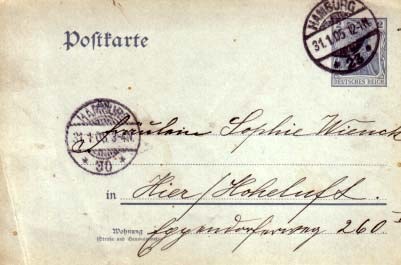 Postkarte
HAMBURG
31.1.05 12-1N.
* 23 *
2
DEUTSCHES REICH
HAMBURG
31.1.05 3-4N.
* 30 *
Fräulein Sophie Wienck
in Hier / Hoheluft.
Wohnung
(Straße und Hausnummer)
Eppendorferweg 260 I